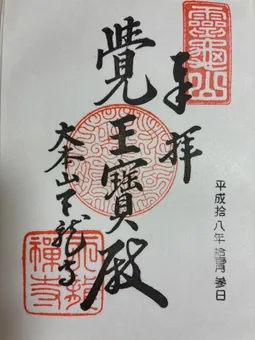 奉拝
靈龜山
覺王寶殿
大本山天龍寺
天龍禅寺
平成拾八年拾壹月参日